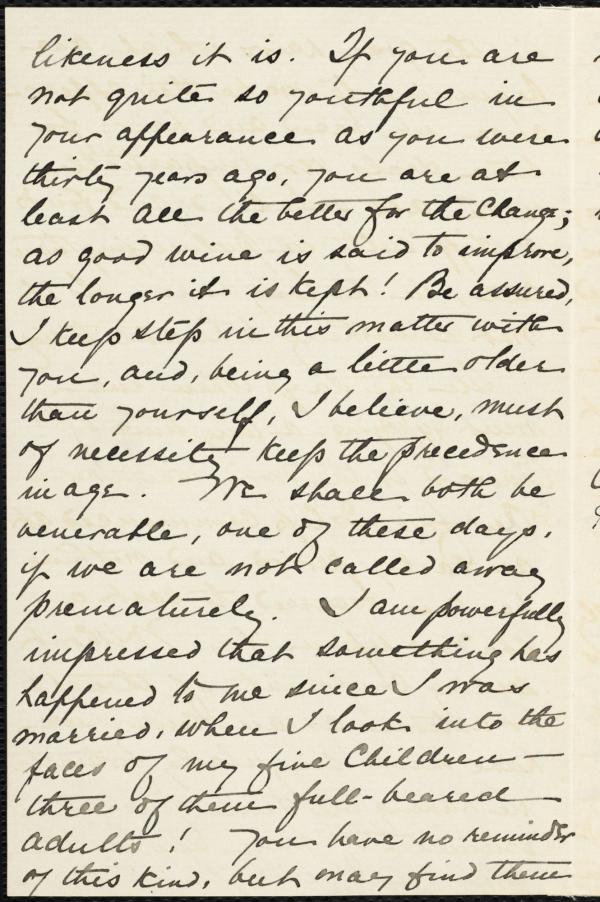 likeness it is. If you are
not quite so youthful in
your appearance as you were
thirty years ago, you are at
least all the better for the change;
as good wine is said to improve,
the longer it is kept! Be assured,
I keep step in this matter with
you, and, being a little older
than yourself, I believe, must
of necessity keep the precedence
in age. We shall both be
venerable, one of these days,
if we are not called away
prematurely. I am powerfully
impressed that something has
happened to me since I was
married, when I look into the
faces of my five children —
three of them full-beared
adults! You have no reminder
of this kind, but may find them